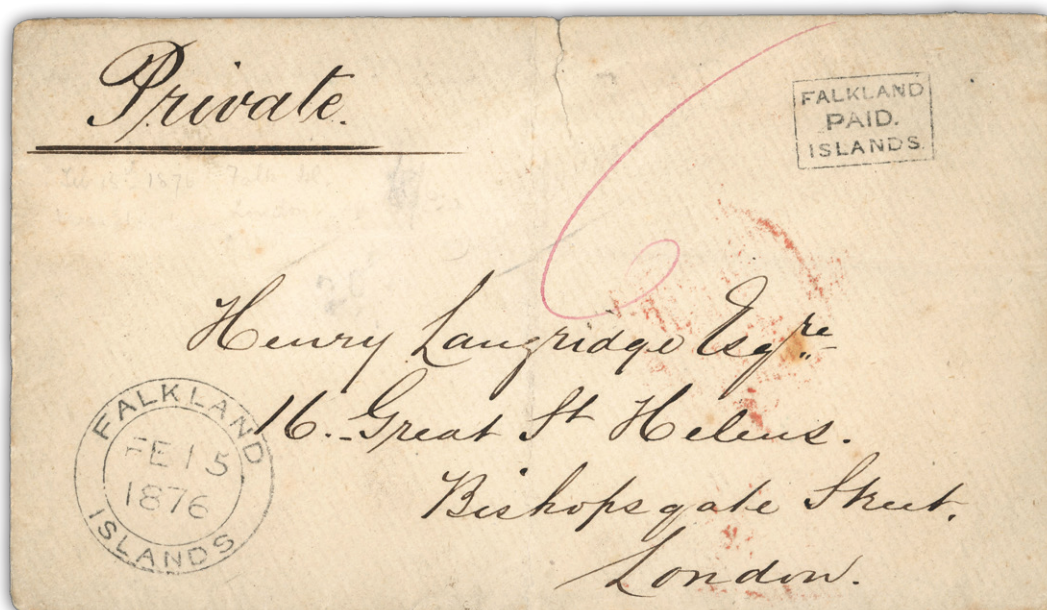 Private.
FALKLAND
PAID.
ISLANDS.
1876
6
Henry Langridge Esqre
16. Great St Helens.
Bishopsgate Street.
London.
FALKLAND
FE 15
1876
ISLANDS